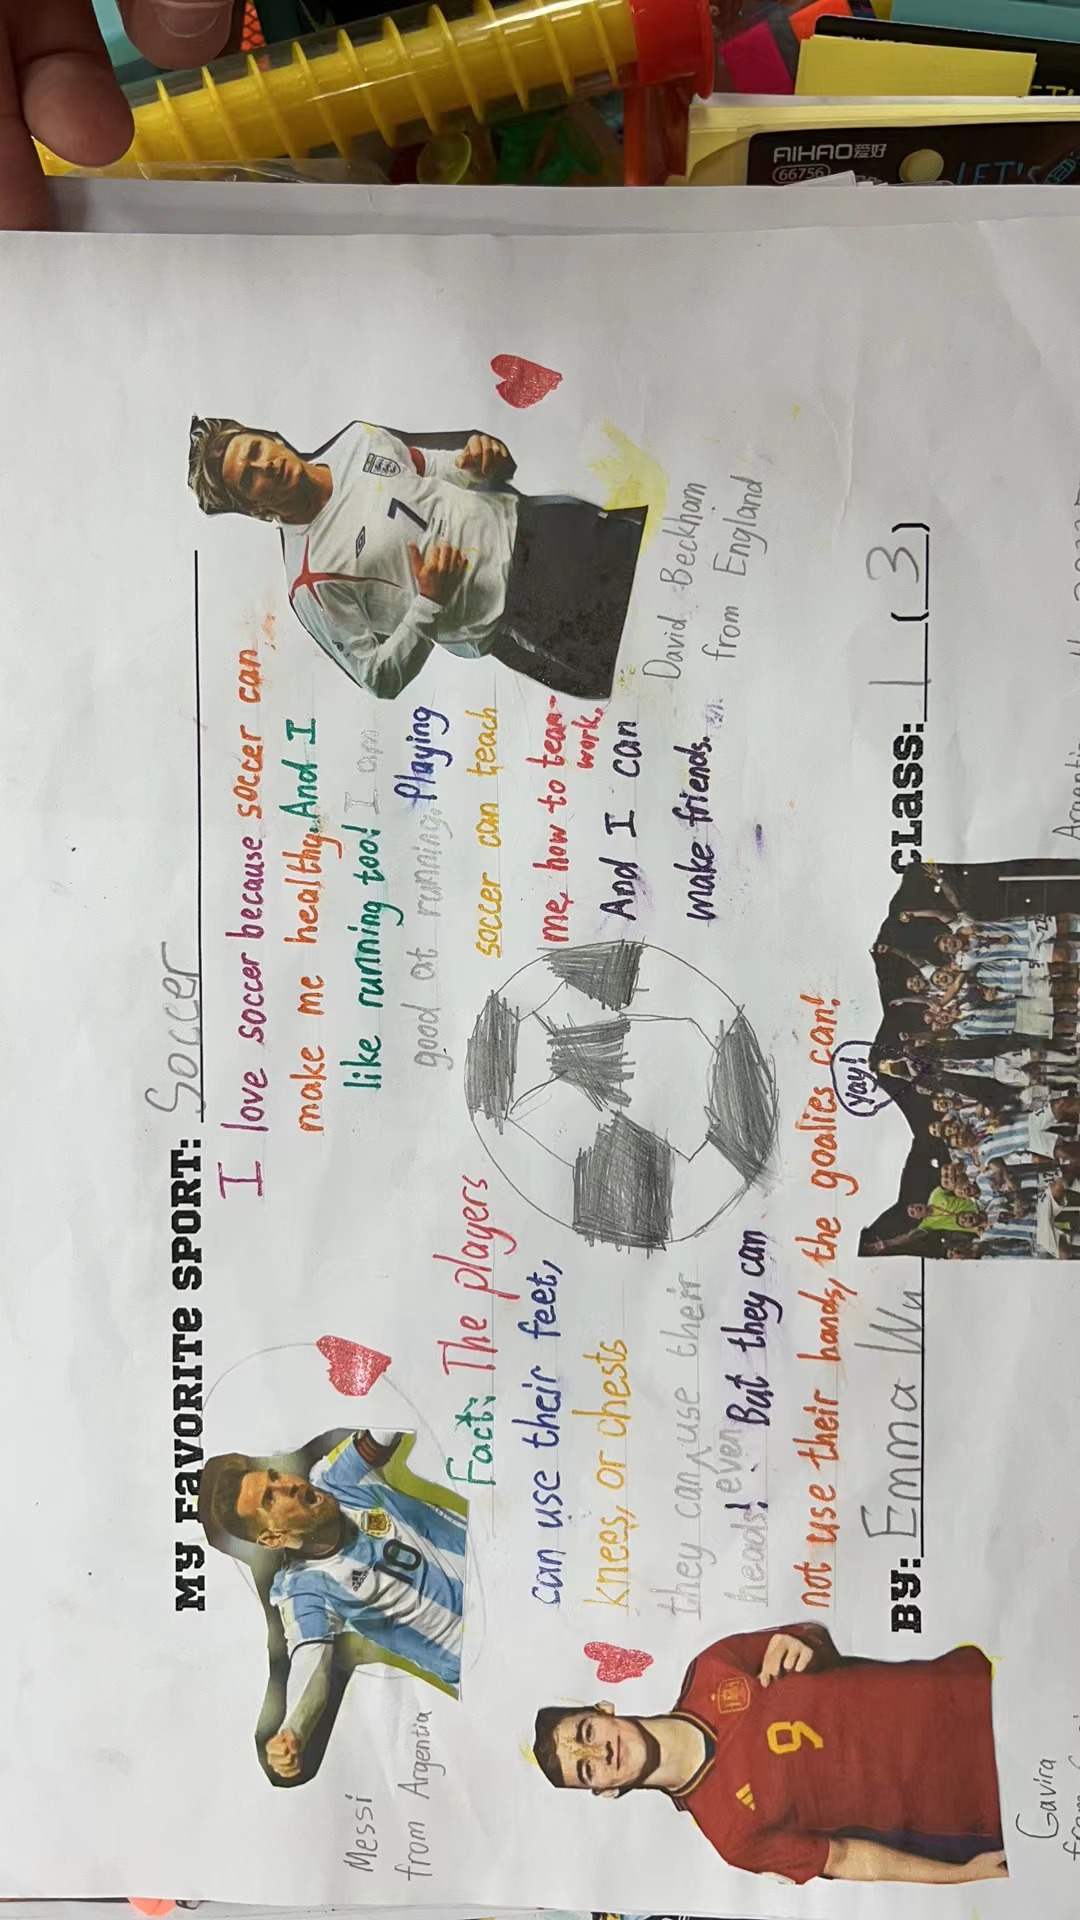 MY FAVORITE SPORT: Soccer
I love soccer because soccer can
make me healthy. And I
like running too! I am
good at running. Playing
soccer can teach
me how to team-
work.
And I can
make friends.
Messi
from Argentia
10
7
David Beckham
from England
Fact: The players
can use their feet,
knees, or chests
they can use their
even
heads! But they can
not use their hands, the goalies can!
yay!
9
BY: Emma Wu
CLASS: 1 (3)
Gavira
from
AIHAO爱好
66756
LET'S